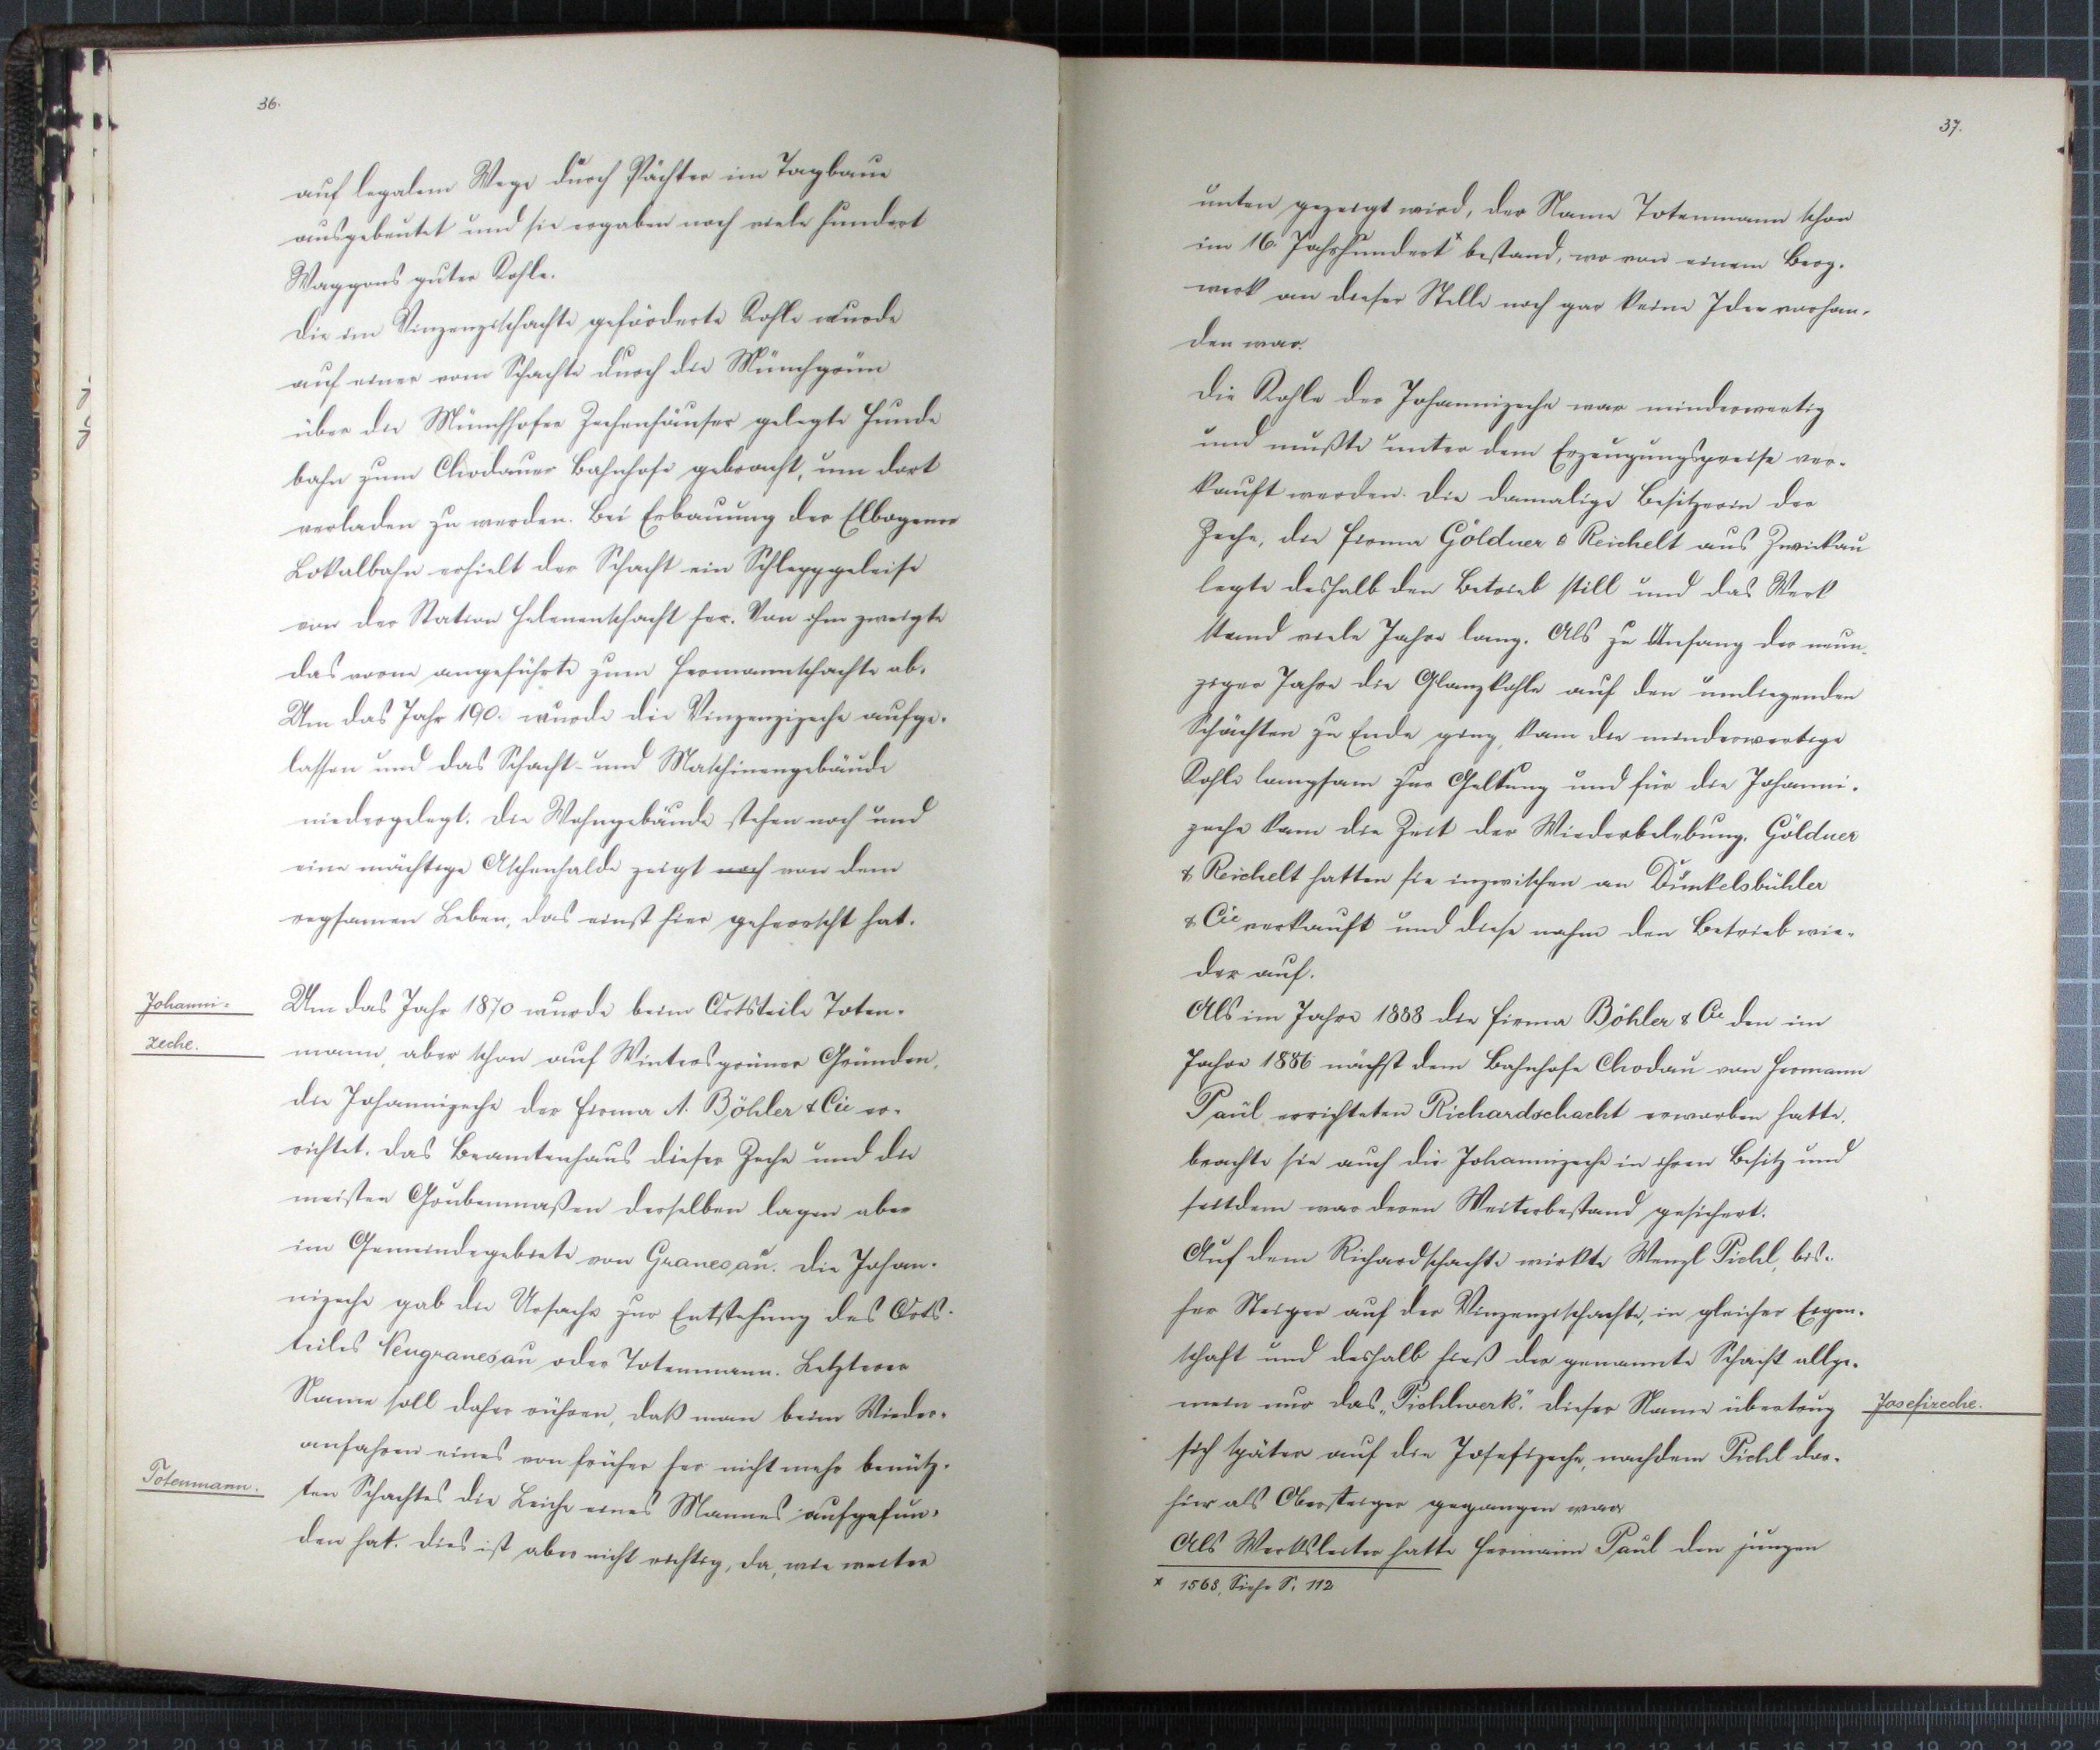 36.
auf legalem Wege durch Pächter im Tagbaue
ausgebeutet und sie ergaben noch viele hundert
Waggons guter Kohle.
Die im Vinzenzischachte geförderte Kohle wurde
auf einer vom Schachte durch die Münchgrün
über die Münchhofer Zechenhäuser gelegte Hunde
bahn zum Chodauer Bahnhofe gebracht, um dort
verladen zu werden. Bei Erbauung der Elbogener
Lokalbahn erhielt der Schacht ein Schleppgeleise
von der Station Helenenschacht her. Von ihm zweigte
das vorne angeführte zum Hermannschachte ab.
Um das Jahr 190. wurde die Vinzenzizeche aufge-
lassen und das Schacht- und Maschinengebäude
niedergelegt. Die Wohngebäude stehen noch und
eine mächtige Aschenhalde zeigt noch von dem
regsamen Leben, das einst hier geherrscht hat.
Johanni-
zeche.
Um das Jahr 1870 wurde beim Ortsteile Toten-
mann, aber schon auf Wintersgrüner Gründen,
die Johannizeche der Firma A. Böhler & Cie er-
richtet. Das Beamtenhaus dieser Zeche und die
meisten Grubenmaßen derselben lagen aber
im Gemeindegebiete von Granesau. Die Johan-
nizeche gab die Ursache zur Entstehung des Orts-
teiles Neugranesau oder Totenmann. Letzterer
Name soll daher rühren, daß man beim Wieder-
anfahren eines von früher her nicht mehr benütz-
Totenmann.
ten Schachtes die Leiche eines Mannes aufgefun-
den hat. Dies ist aber nicht richtig, da, wie weiter
37.
unten gezeigt wird, der Name Totenmann schon
im 16. Jahrhundert x bestand, wo von einem Berg-
werk an dieser Stelle noch gar keine Idee vorhan-
den war.
Die Kohle der Johannizeche war minderwertig
und mußte unter dem Erzeugungspreise ver-
kauft werden. Die damalige Besitzerin der
Zeche, die Firma Göldner & Reichelt aus Zwickau
legte deshalb den Betrieb still und das Werk
stand viele Jahre lang. Als zu Anfang der neun-
ziger Jahre die Glanzkohle auf den umliegenden
Schächten zu Ende ging, kam die minderwertige
Kohle langsam zur Geltung und für die Johanni-
zeche kam die Zeit der Wiederbelebung. Göldner
& Reichelt hatten sie inzwischen an Dünkelsbühler
& Cie verkauft und diese nahm den Betrieb wie-
der auf.
Als im Jahre 1888 die Firma Böhler & Cie den im
Jahre 1886 nächst dem Bahnhofe Chodau von Hermann
Paul errichteten Richardschacht erworben hatte,
brachte sie auch die Johannizeche in ihren Besitz und
seitdem war deren Weiterbestand gesichert.
Auf dem Richardschachte wirkte Wenzl Pichl, bis-
her Steiger auf der Vinzenzischachte, in gleicher Eigen-
schaft und deshalb hieß der genannte Schacht allge-
mein nur das „Pichlwerk". Dieser Name übertrug
Josefizeche.
sich später auf die Josefizeche, nachdem Pichl dor-
hin als Obersteiger gegangen war
Als Werksleiter hatte Hermann Paul den jungen
x 1568, Siehe S. 112